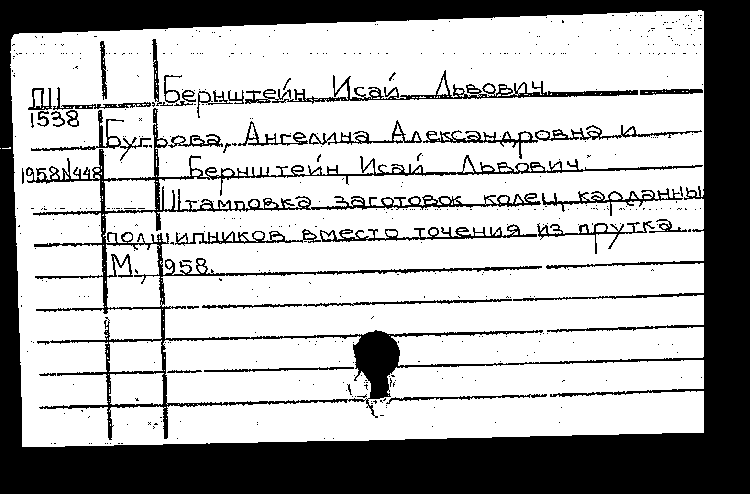 Бернштейн, Исай Львович
П11
1538
Бугрова, Ангелина Александровна и
1958№448 Бернштейн, Исай Львович.
Штамповка заготовок колец карданны
подшипников вместо точения из прутка.
М., 1958.